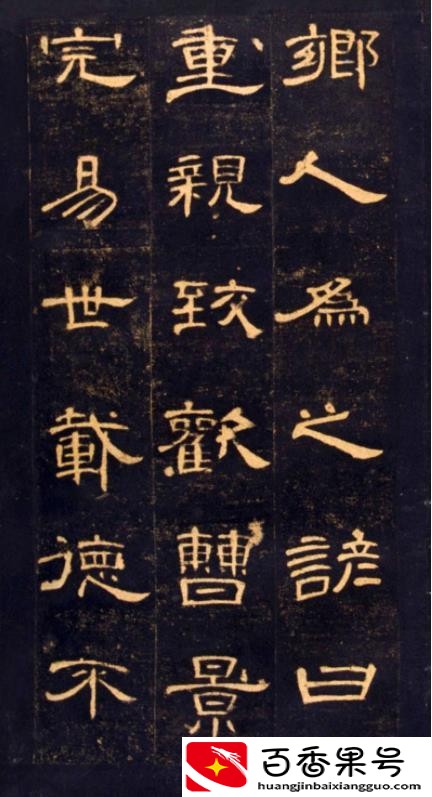 鄉人為之諺曰
重親致歡曹景
完易世載德不
百香果号
huangjinbaixiangguo.com